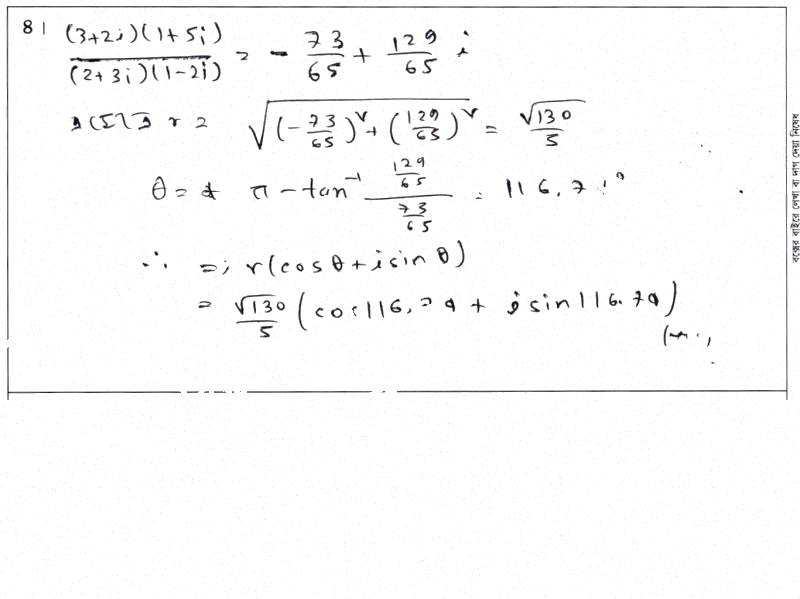 8| \frac{(3+2i)(1+5i)}{(2+3i)(1-2i)} = -\frac{73}{65} + \frac{129}{65} i
r = \sqrt{(-\frac{73}{65})^2 + (\frac{129}{65})^2} = \frac{\sqrt{130}}{5}
θ = π - tan^{-1} \frac{\frac{129}{65}}{\frac{73}{65}} = 116.7
∴ = r(cosθ + i sinθ)
= \frac{\sqrt{130}}{5} (cos 116.79 + i sin 116.79)
বক্সের বাইরে লেখা বা দাগ দেয়া নিষেধ